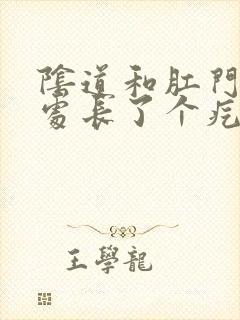 陰道和肛門
處長了个疙
王學龍